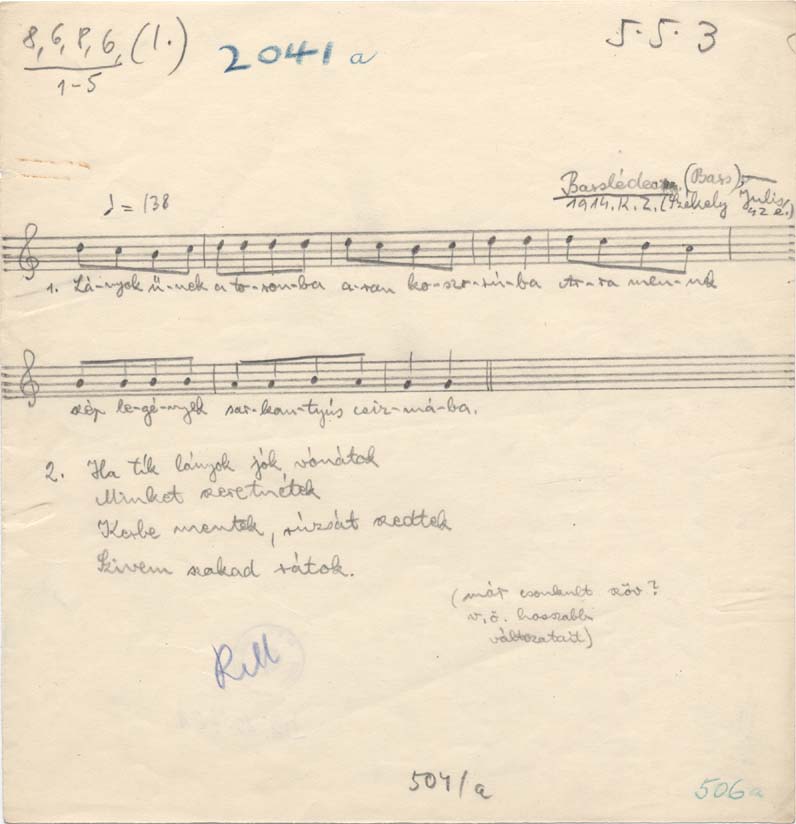 8, 6, 8, 6, (1.)
1-5
2041 a
5. 5. 3
♩ = 138
(Bars)
1914. K. Z. (Székely Julis
42 é.)
1. Lá-nyok ű-nek a to-ron-ba a-ran ko-szo-rú-ba Ar-ra men-nek
szép le-gé-nyek sar-kan-tyús csiz-má-ba.
2. Ha tík lányok jók vónátok
Minket szeretnétek
Kerbe mentek, rúzsát szedtek
Szivem szakad rátok.
(már csonkult szöv?
v.ö. hosszabb
változatait)
504/a
506a